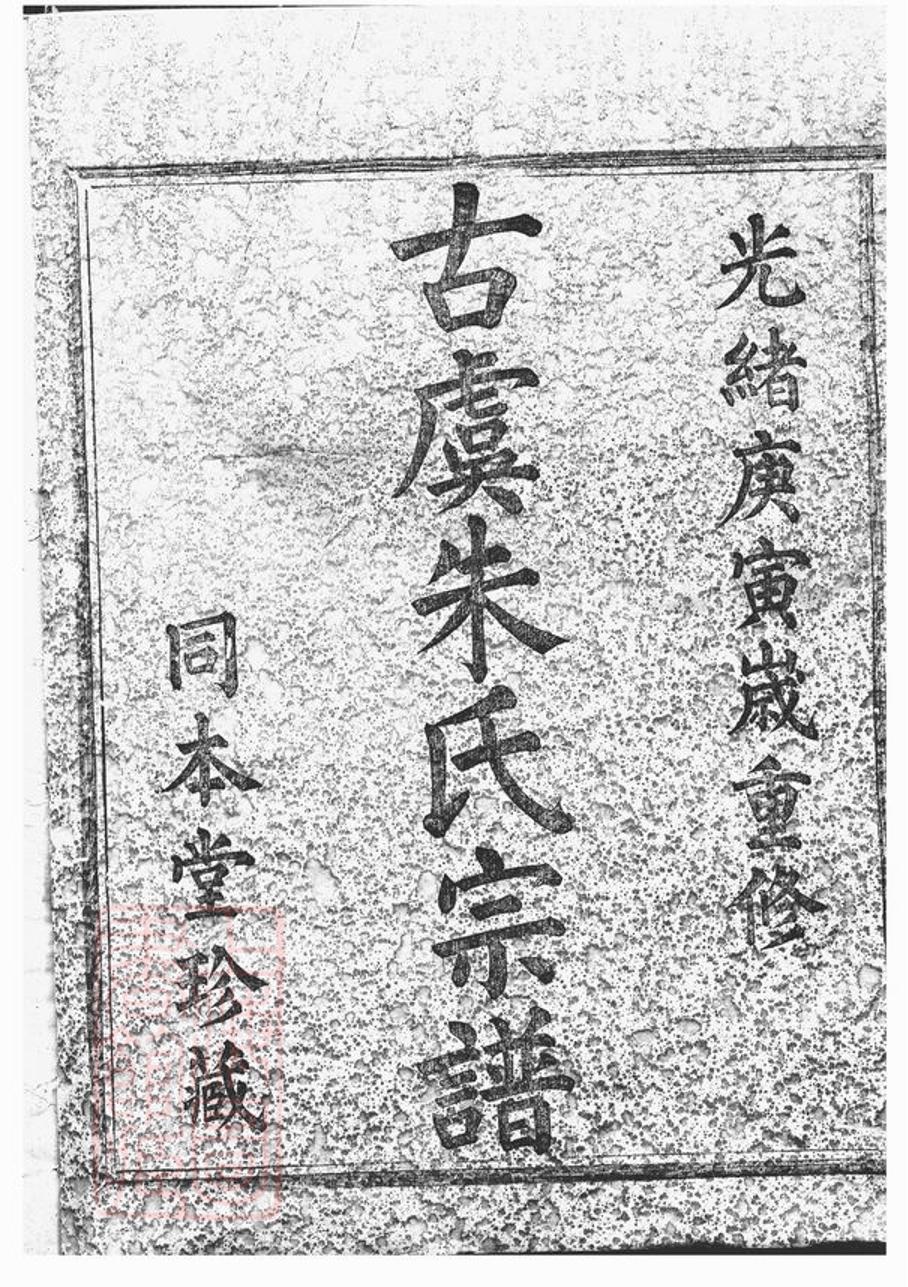 光緒庚寅歲重修
古虞朱氏宗譜
同本堂珍藏